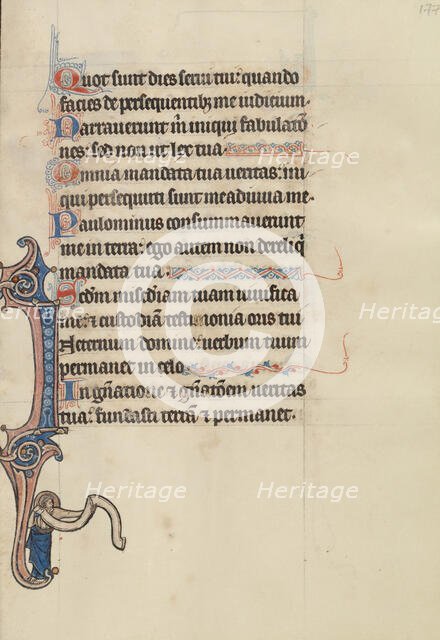 177
Quot sunt dies serui tui: quando
facies de persequentibz me iudicium.
Narrauerunt m̄ iniqui fabulatō
nes: sed non ut lex tua.
Omnia mandata tua ueritas: ini
qui persequuti sunt me adiuua me.
Paulominus consummauerunt
me in terra: ego autem non dereliq̄
mandata tua.
Scd̄m mīs̄c̄diam tuam uiuifica
me: & custodiā testimonia oris tui.
In eternum domine: uerbum tuum
permanet in celo.
In gn̄atione & gn̄atōem ueritas
tua: fundasti terrā & permanet.
Heritage
Heritage
Heritage
Heritage
Heritage
Heritage
Heritage
Heritage
©